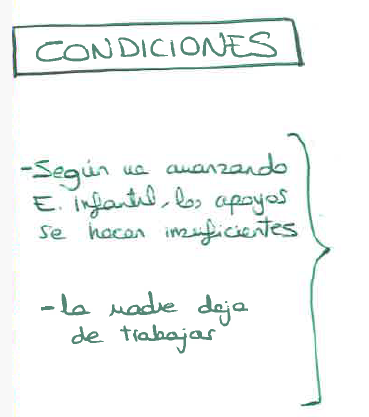 CONDICIONES
-Según va avanzando
E. infantil, los apoyos
se hacen insuficientes
-La madre deja
de trabajar